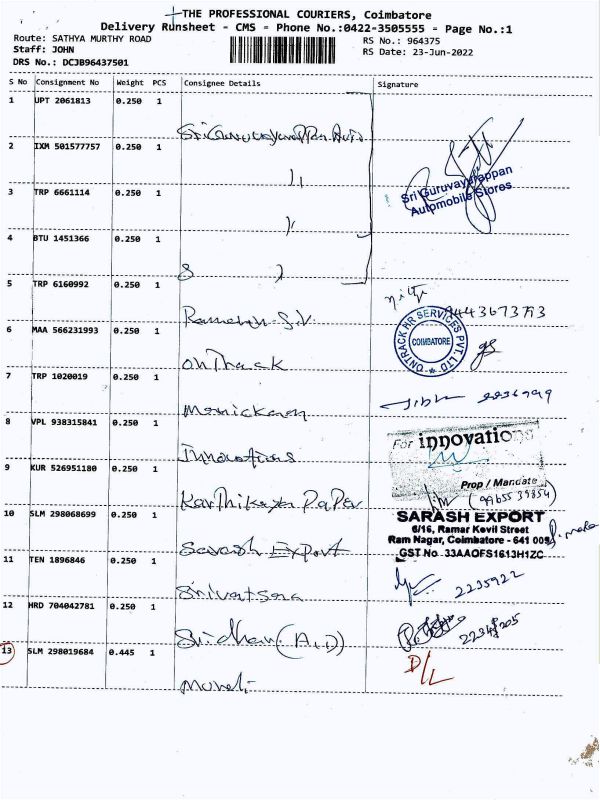 THE PROFESSIONAL COURIERS, Coimbatore
Delivery Runsheet - CMS - Phone No.:0422-3505555 - Page No.:1
Route: SATHYA MURTHY ROAD
RS No.: 964375
Staff: JOHN
RS Date: 23-Jun-2022
DRS No.: DCJB96437501
S No Consignment No Weight PCS Consignee Details Signature
1 UPT 2061813 0.250 1
2 IXM 501577757 0.250 1
Sri Guruvayurappan
Automobile Stores
3 TRP 6661114 0.250 1
4 BTU 1451366 0.250 1
5 TRP 6160992 0.250 1
6 MAA 566231993 0.250 1
ONTRACK HR SERVICES PVT. LTD
COIMBATORE
OnThack
7 TRP 1020019 0.250 1
Manickam
8 VPL 938315841 0.250 1
For innovations
Innovations
Prop / Mandate
9 KUR 526951180 0.250 1
Karthikaya Paper
10 SLM 298068699 0.250 1
SARASH EXPORT
6/16, Ramar Kovil Street
Ram Nagar, Coimbatore - 641 009
GST No 33AAOFS1613H1ZC
Sarash Export
11 TEN 1896846 0.250 1
2235922
Srivatsara
12 HRD 704042781 0.250 1
Sridhar (A.D)
13 SLM 298019684 0.445 1
D/L
Murali